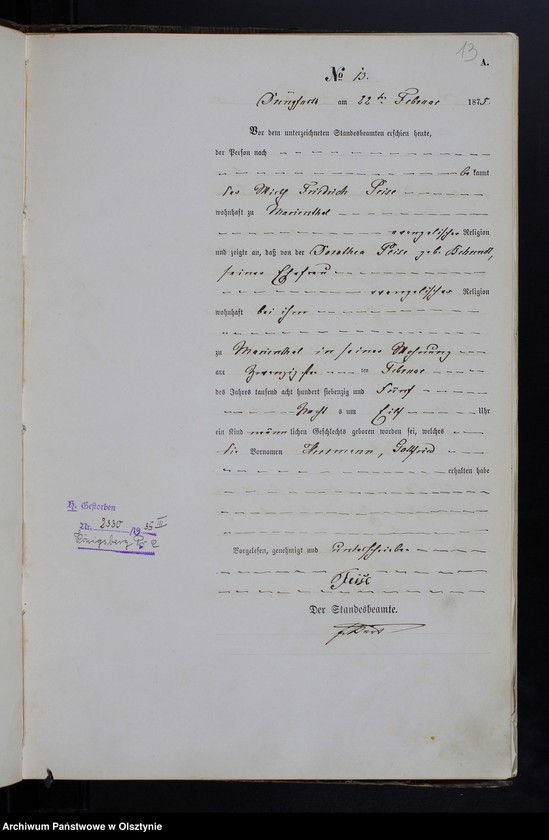 13
A.
No 13.
am 22ten Februar 1875.
Vor dem unterzeichneten Standesbeamten erschien heute,
der Person nach
bekannt
der Wirth Friedrich Peise
wohnhaft zu Marienthal
evangelischer Religion
und zeigte an, daß von der Dorothea Peise geb.
seiner Ehefrau
evangelischer Religion
wohnhaft bei ihm
zu Marienthal in seiner Wohnung
am Zwanzigsten ten Februar
des Jahres tausend acht hundert siebenzig und Fünf
Nachts um Eilf Uhr
ein Kind männlichen Geschlechts geboren worden sei, welches
die Vornamen Herrmann, Gottfried
erhalten habe
Gestorben
Nr. 2330/1935 III
Königsberg Pr
Vorgelesen, genehmigt und unterschrieben
Peise
Der Standesbeamte.
Archiwum Państwowe w Olsztynie